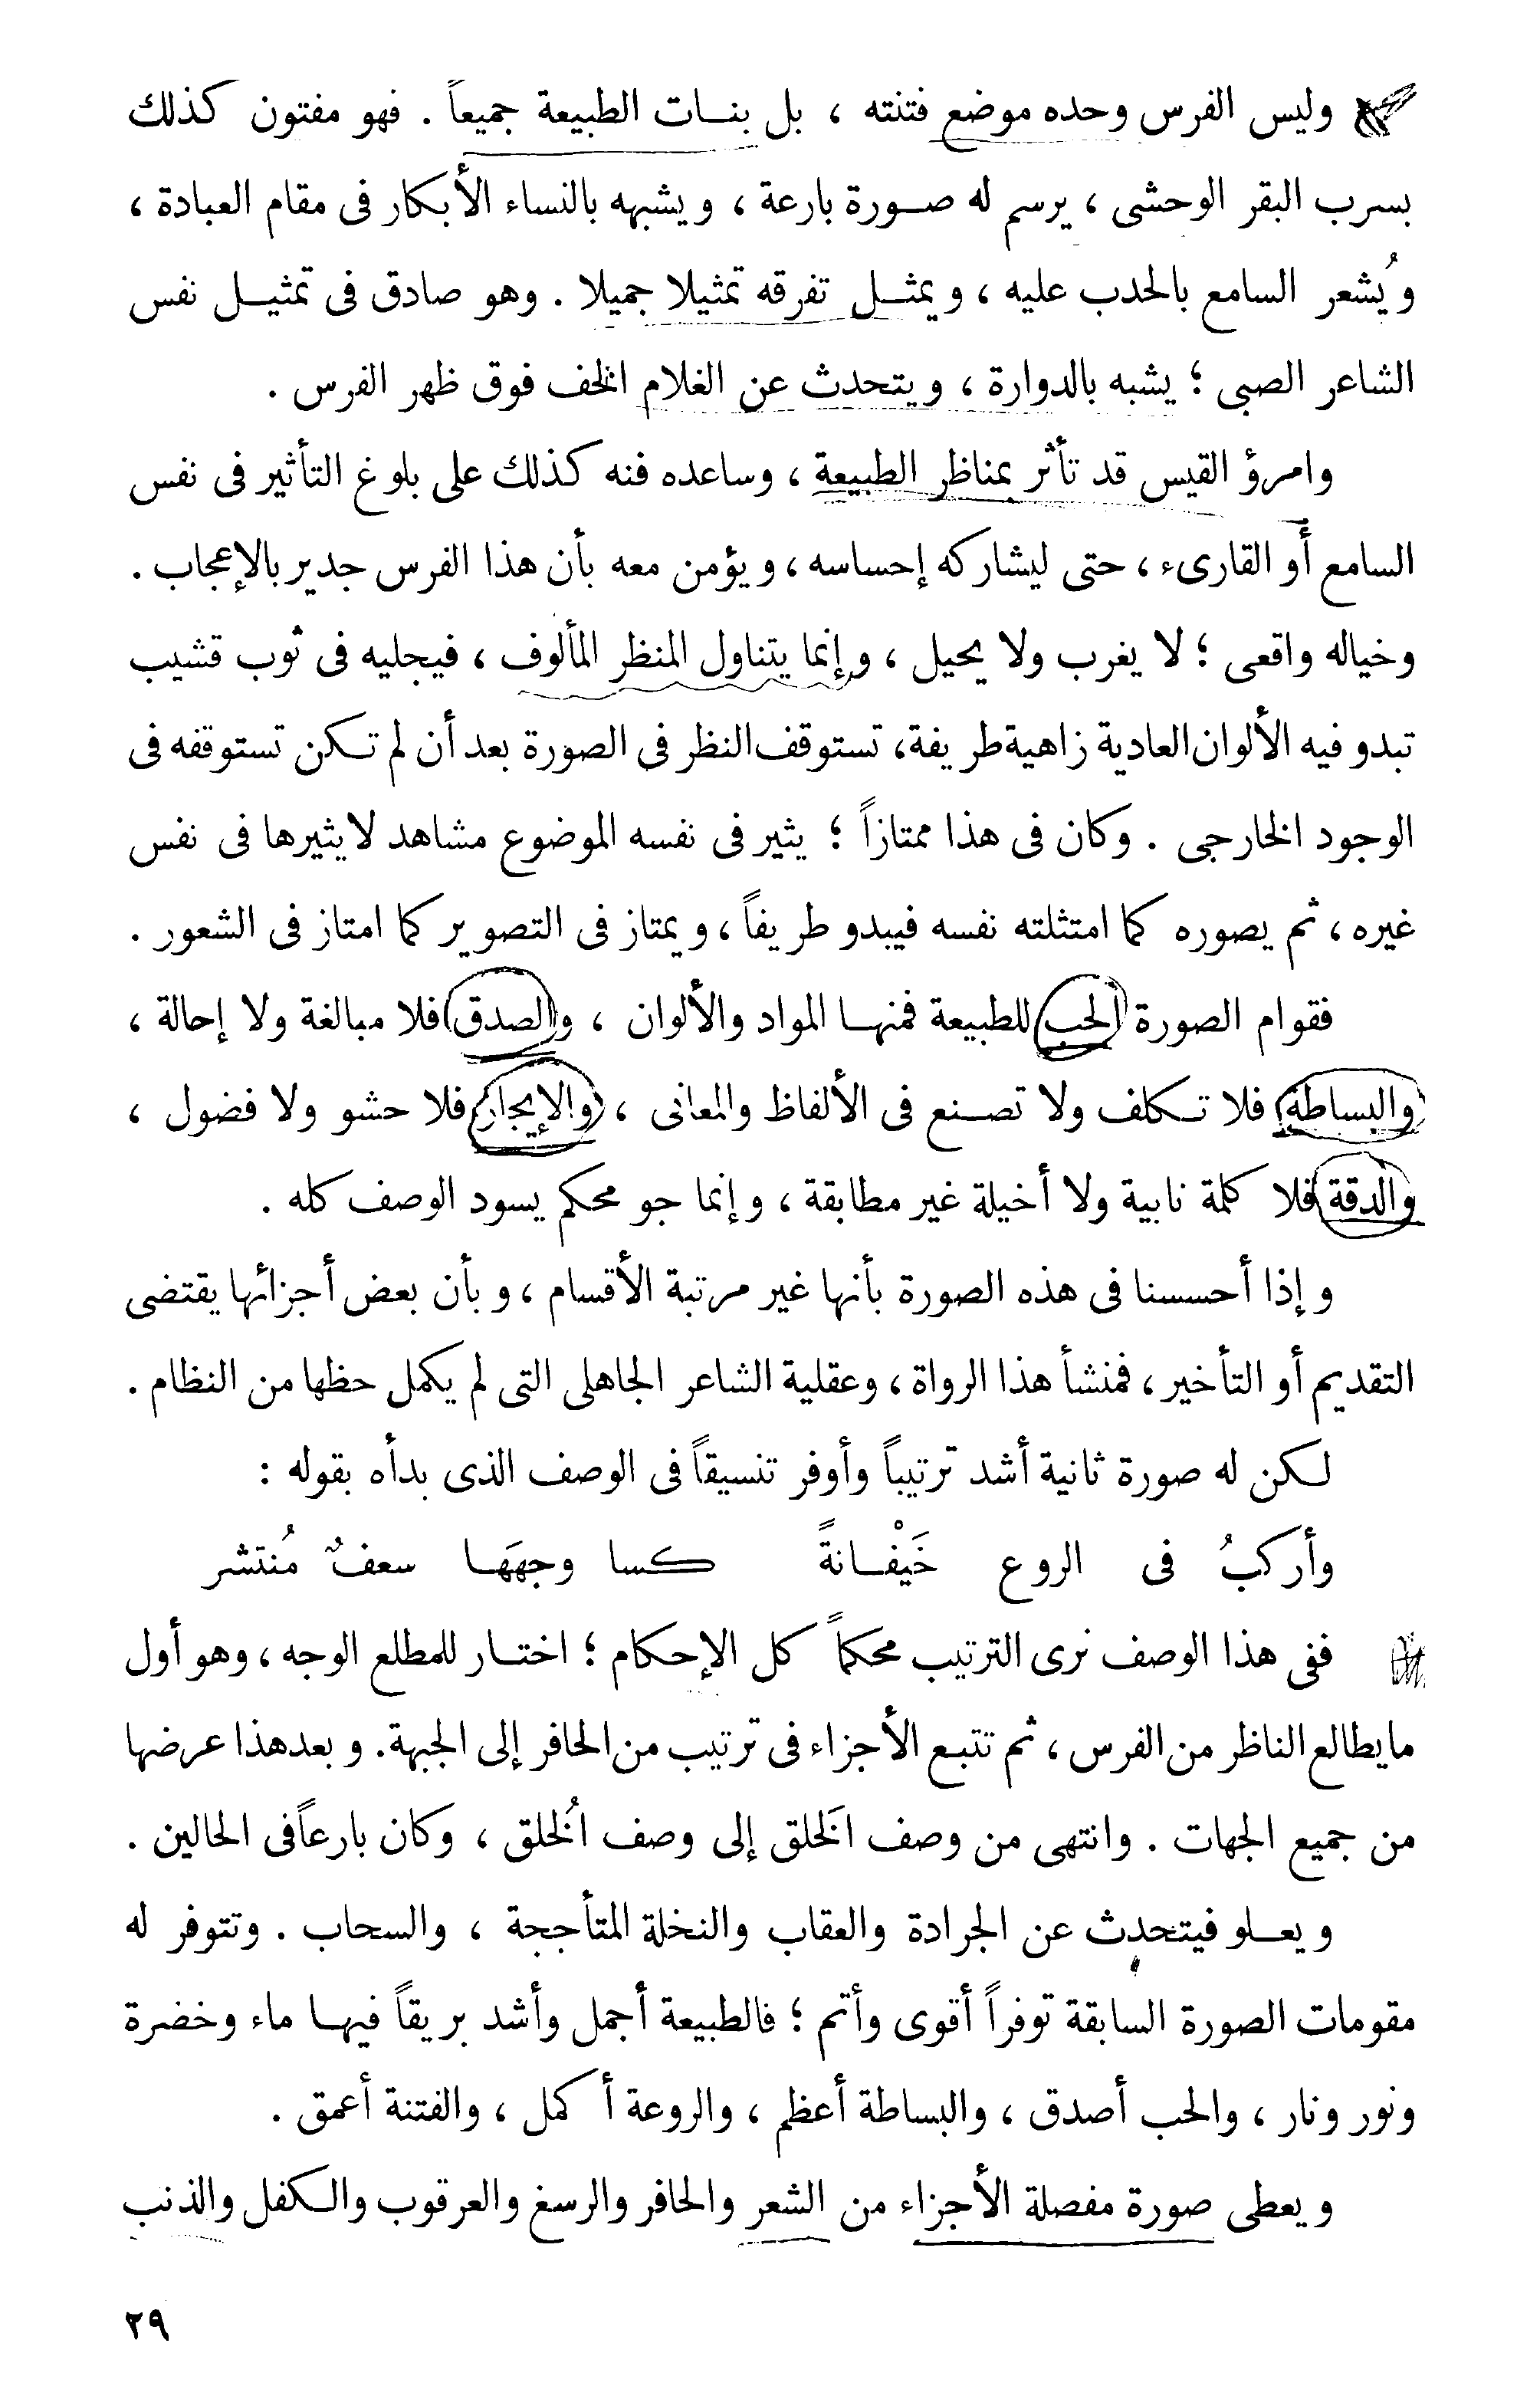 وليس الفرس وحده موضع فتنته ، بل بنات الطبيعة جميعاً . فهو مفتون كذلك
بسرب البقر الوحشى ، يرسم له صورة بارعة ، ويشبهه بالنساء الأبكار فى مقام العبادة ،
ويُشعر السامع بالحدب عليه ، ويمثل تفرقه تمثيلا جميلا . وهو صادق فى تمثيل نفس
الشاعر الصبى ؛ يشبه بالدوارة ، ويتحدث عن الغلام الخف فوق ظهر الفرس .
وامرؤ القيس قد تأثر بمناظر الطبيعة ، وساعده فنه كذلك على بلوغ التأثير فى نفس
السامع أو القارىء ، حتى ليشاركه إحساسه ، ويؤمن معه بأن هذا الفرس جدير بالإعجاب .
وخياله واقعى ؛ لا يغرب ولا يحيل ، وإنما يتناول المنظر المألوف ، فيجليه فى ثوب قشيب
تبدو فيه الألوان العادية زاهية طريفة، تستوقف النظر فى الصورة بعد أن لم تكن تستوقفه فى
الوجود الخارجى . وكان فى هذا ممتازاً ؛ يثير فى نفسه الموضوع مشاهد لا يثيرها فى نفس
غيره ، ثم يصوره كما امتثلته نفسه فيبدو طريفاً ، ويمتاز فى التصوير كما امتاز فى الشعور .
فقوام الصورة الحب للطبيعة فمنها المواد والألوان ، والصدق فلا مبالغة ولا إحالة ،
والبساطة فلا تكلف ولا تصنع فى الألفاظ والمعانى ، والإيجاز فلا حشو ولا فضول ،
والدقة فلا كلمة نابية ولا أخيلة غير مطابقة ، وإنما جو محكم يسود الوصف كله .
وإذا أحسسنا فى هذه الصورة بأنها غير مرتبة الأقسام ، وبأن بعض أجزائها يقتضى
التقديم أو التأخير ، فمنشأ هذا الرواة ، وعقلية الشاعر الجاهلى التى لم يكمل حظها من النظام .
لكن له صورة ثانية أشد ترتيباً وأوفر تنسيقاً فى الوصف الذى بدأه بقوله :
وأركبُ فى الروع خَيْفانةً كسا وجهَها سعفٌ مُنتشر
ففى هذا الوصف نرى الترتيب محكماً كل الإحكام ؛ اختار للمطلع الوجه ، وهو أول
ما يطالع الناظر من الفرس ، ثم تتبع الأجزاء فى ترتيب من الحافر إلى الجبهة. وبعد هذا عرضها
من جميع الجهات . وانتهى من وصف الخَلق إلى وصف الخُلق ، وكان بارعاً فى الحالين .
ويعلو فيتحدث عن الجرادة والعقاب والنخلة المتأججة ، والسحاب . وتتوفر له
مقومات الصورة السابقة توفراً أقوى وأتم ؛ فالطبيعة أجمل وأشد بريقاً فيها ماء وخضرة
ونور ونار ، والحب أصدق ، والبساطة أعظم ، والروعة أكمل ، والفتنة أعمق .
ويعطى صورة مفصلة الأجزاء من الشعر والحافر والرسغ والعرقوب والكفل والذنب
٢٩